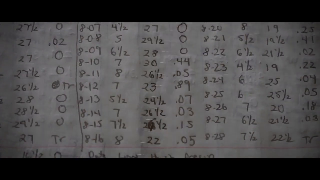 27½ 0 8-07 4½ 27 0 8-20 8 19 .25
27 .02 8-08 5 29½ 0 8-21 5½ 19½ .41
0 8-09 6½ 28 0 8-22 6½ 21½ .02
27 0 8-10 7 30 .44 8-23 4½ 19 .22
27½ 0 8-11 8 26½ .05 8-24 6 25 .04
26½ Tr 8-12 7 23 .89 8-25 6 28½ .05
28 0 8-13 5½ 24½ .07 8-26 7 20 .18
28 0 8-14 7 26½ .03 8-27 6½ 21½ .03
29½ 0 8-15 7½ 26½ .15 8-28 7½ 22½ Tr
27 Tr 8-16 8 22 .05